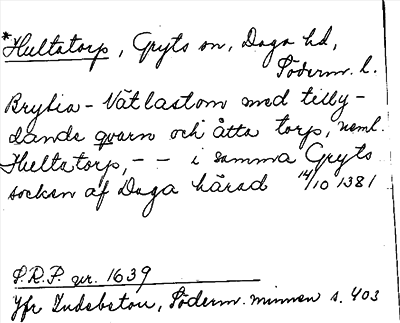 *Hultatorp, Gryts sn, Daga hd,
Söderm. l.
Brytia - Vätlastom med tilly-
dande qvarn och åtta torp, neml.
Hultatorp, - - i samma Gryts
socken af Daga härad 14/10 1381
S.R.P. nr. 1639
Jfr Indebetou, Söderm. minnen s. 403